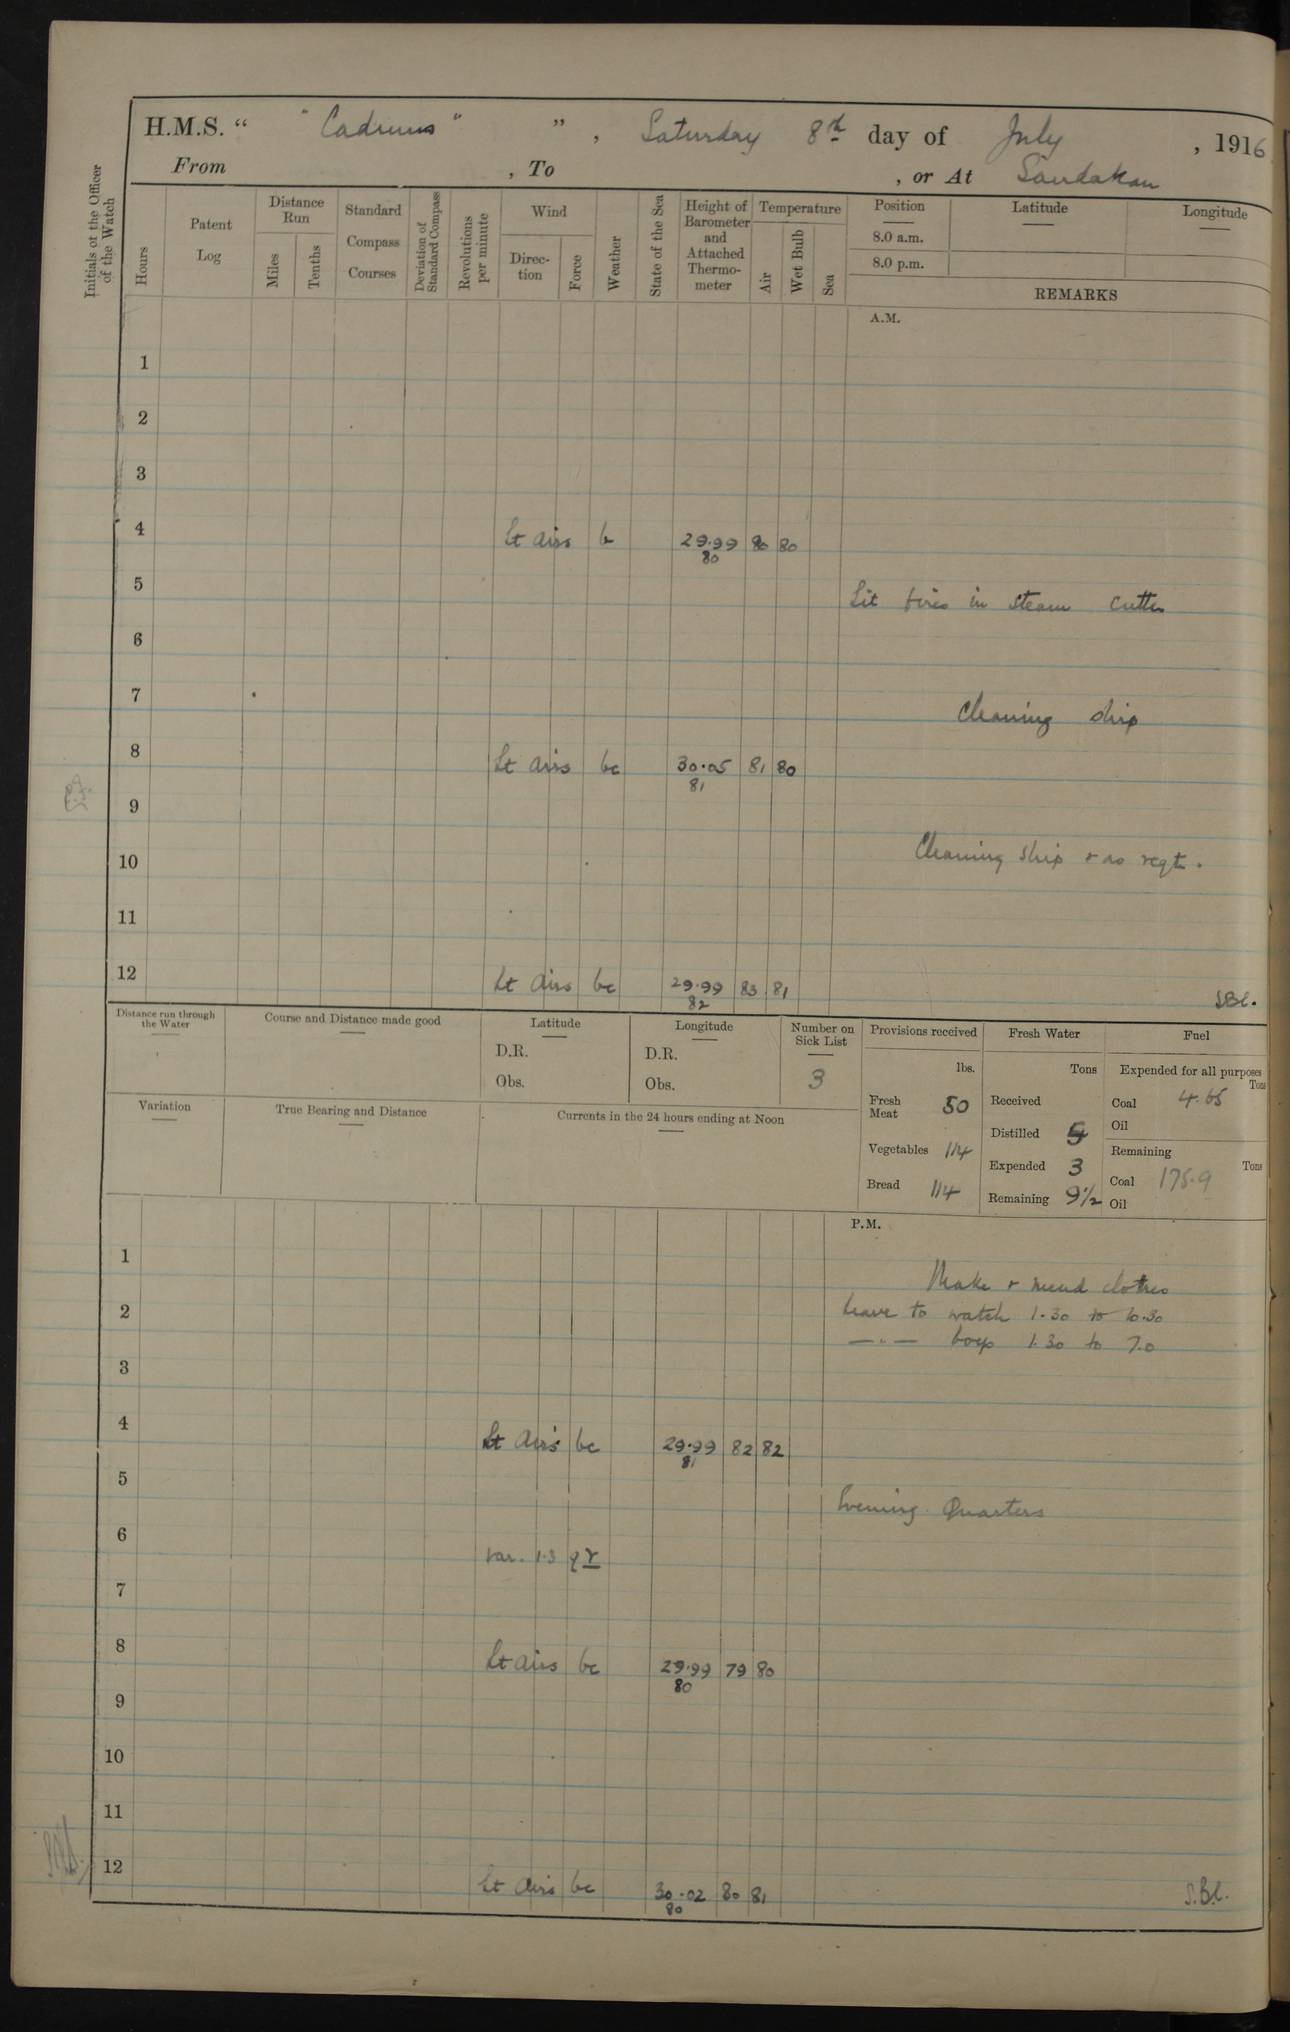 H.M.S. “ "Cadmus" ” , Saturday 8th day of July , 1916
From , To , or At Sandakan
Initials of the Officer of the Watch
Hours
Patent Log
Distance Run
Miles
Tenths
Standard Compass Courses
Deviation of Standard Compass
Revolutions per minute
Wind
Direc-tion
Force
Weather
State of the Sea
Height of Barometer and Attached Thermo-meter
Temperature
Air
Wet Bulb
Sea
Position Latitude Longitude
8.0 a.m.
8.0 p.m.
REMARKS
A.M.
1
2
3
4 Lt airs b 29.99 80 80
80
5 Lit fires in steam cutter
6
7 Cleaning ship
8 Lt airs bc 30.05 81 80
81
9
10 Cleaning ship & as reqte.
11
12 Lt airs bc 29.99 83 81
82
Distance run through the Water
Course and Distance made good
Latitude
D.R.
Obs.
Longitude
D.R.
Obs.
Number on Sick List
3
Variation
True Bearing and Distance
Currents in the 24 hours ending at Noon
Provisions received
lbs.
Fresh Meat 50
Vegetables 114
Bread 114
Fresh Water
Tons
Received
Distilled 5
Expended 3
Remaining 9½
Fuel
Expended for all purposes
Tons
Coal 4.65
Oil
Remaining
Tons
Coal 175.9
Oil
P.M.
1 Make & mend clothes
2 Leave to watch 1.30 to 10.30
—"— boys 1.30 to 7.0
3
4 Lt airs bc 29.99 82 82
81
5 Evening Quarters
6 var. 1.3 qr
7
8 Lt airs bc 29.99 79 80
80
9
10
11
12 Lt airs bc 30.02 80 81
80